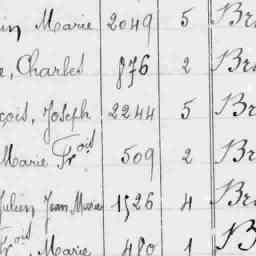 in Marie 2049 5 Br
e, Charles 876 2 Br
çois, Joseph 2244 5 Br
Marie Frois 509 2 Br
Julien Jean Marie 1526 4 Br
Frois, Marie 480 1 B